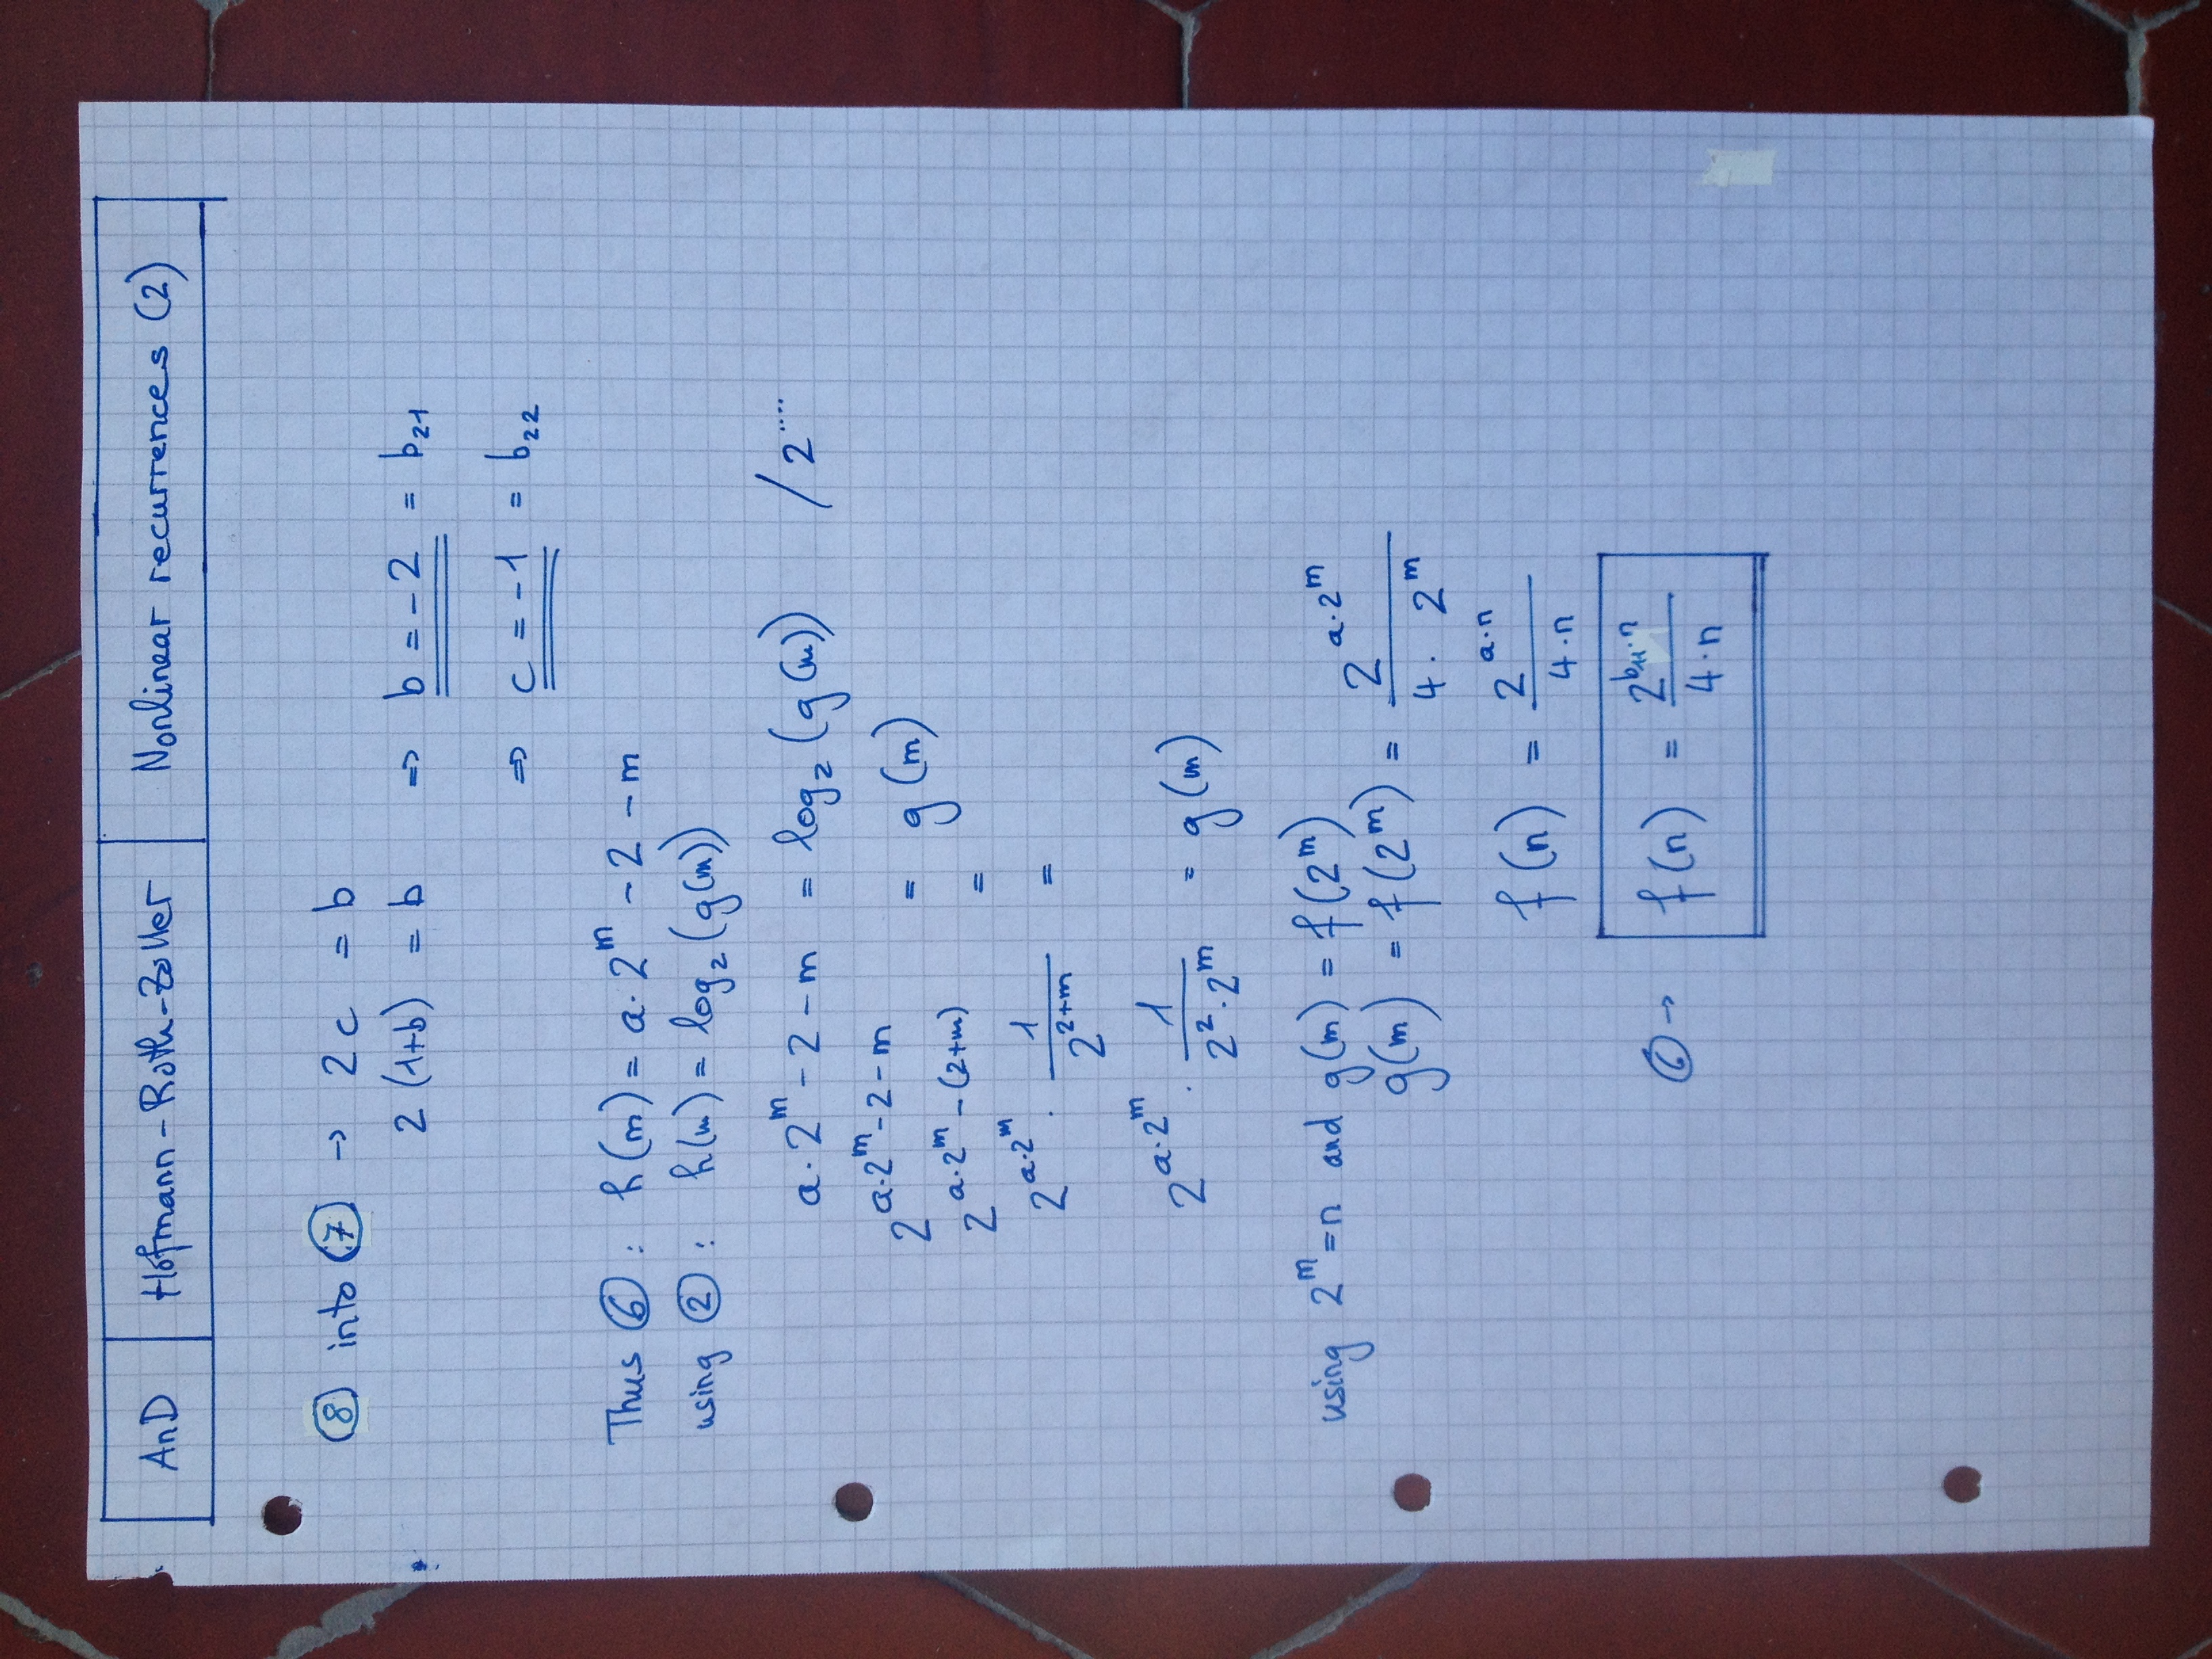 AnD Hofmann-Roth-Zoller Nonlinear recurrences (2)
⑧ into ⑦ → 2c = b
2 (1+b) = b ⇒ b = -2 = b₂₁
⇒ c = -1 = b₂₂
Thus ⑥ : h(m) = a·2^m - 2 - m
using ② : h(m) = log₂(g(m))
a·2^m - 2 - m = log₂(g(m)) / 2^....
2^(a·2^m - 2 - m) = g(m)
2^(a·2^m - (2+m)) =
2^(a·2^m) · 1/2^(2+m) =
2^(a·2^m) · 1/(2^2·2^m) = g(m)
using 2^m = n and g(m) = f(2^m)
g(m) = f(2^m) = 2^(a·2^m)/(4· 2^m)
f(n) = 2^(a·n)/(4·n)
⑥ → f(n) = 2^(b₁₁·n)/(4·n)